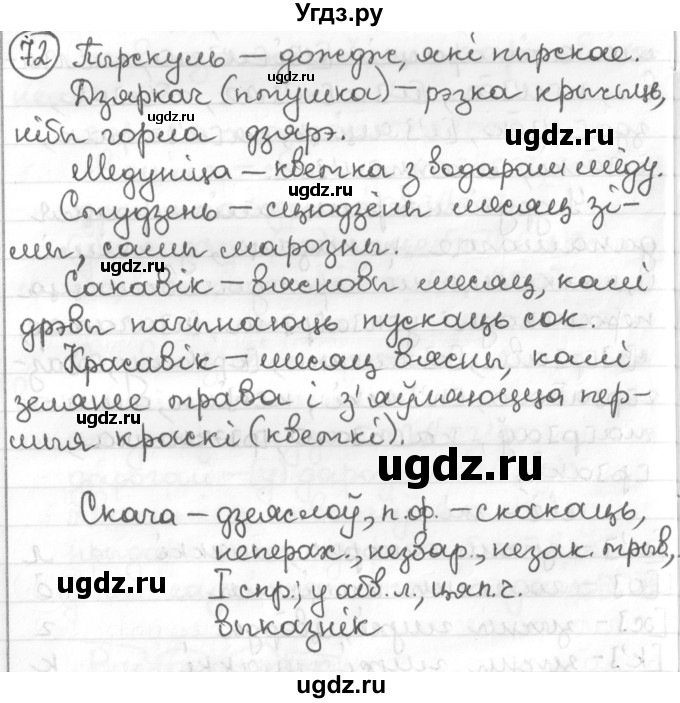 Угдз.ру
72 Пырскуль – дождж, які пырскае.
ugdz.ru
Дзяркач (птушка) – рэзка крычыць,
ugdz.ru
нібы горла дзярэ.
Медуніца – кветка з водарам мёду.
ugdz.ru
Студзень – сцюдзёны месяц зі-
мы, самы марозны.
ugdz.ru
Сакавік – вясновы месяц, калі
ugdz.ru
дрэвы пачынаюць пускаць сок.
Красавік – месяц вясны, калі
ugdz.ru
зелянее трава і з'яўляюцца пер-
шыя краскі (кветкі).
ugdz.ru
ugdz.ru
Скача – дзеяслоў, п.ф. – скакаць,
неперах., незвар., незак. трыв.,
ugdz.ru
I спр.; у абв. л., цяп. ч.
выказнік
ugdz.ru